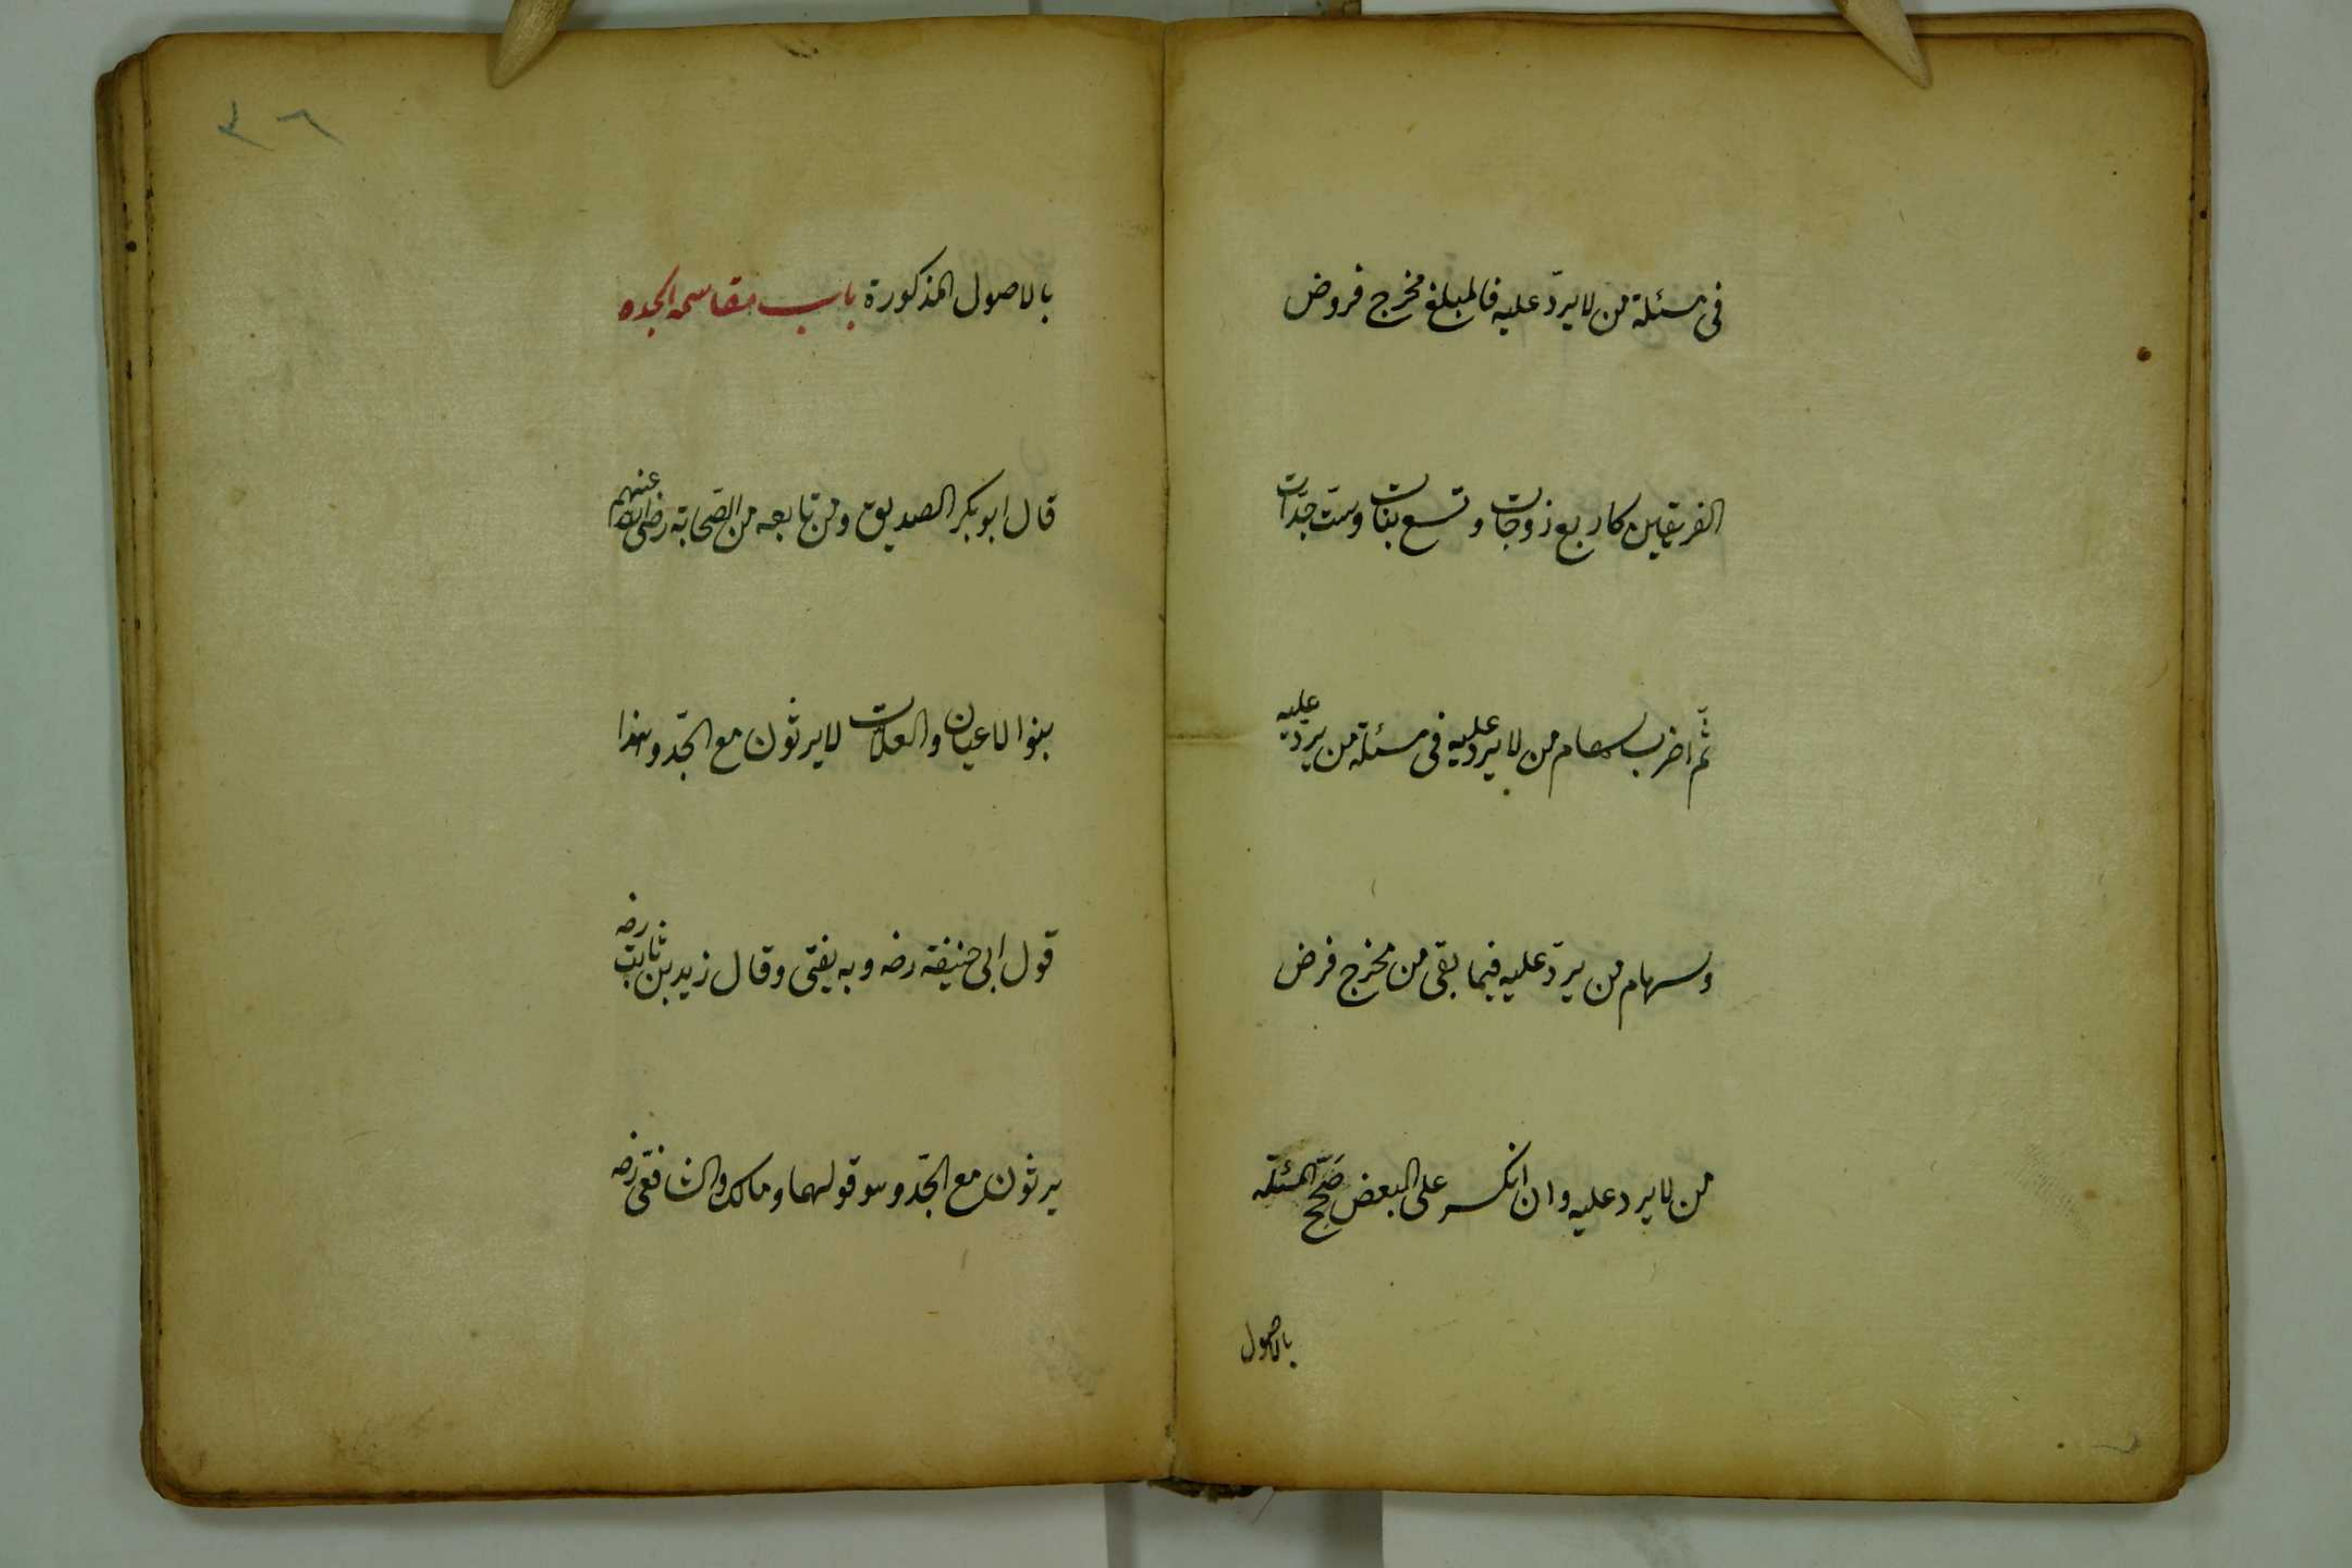 فى مسئلة من لا يردّ عليه فالمبلغ مخرج فروض
الفريقين كاربع زوجات وتسع بنات وستّ جدّات
ثمّ اضرب سهام من لا يردّ عليه فى مسئلة من يردّ عليه
وسهام من يردّ عليه فيما بقى من مخرج فرض
من لا يرد عليه وان انكسر على البعض صَحّح المسئلة
بالاصول
٣٦
بالاصول المذكورة باب مقاسمة الجد
قال ابو بكر الصديق ومن تابعه من الصّحابة رضى الله عنهم
بنوا الاعيان والعلات لا يرثون مع الجّد وهذا
قول ابى حنيفة رضه وبه يفتى وقال زيد بن ثابت رضه
يرثون مع الجّد وهو قولهما ومالك والشافعى رضه